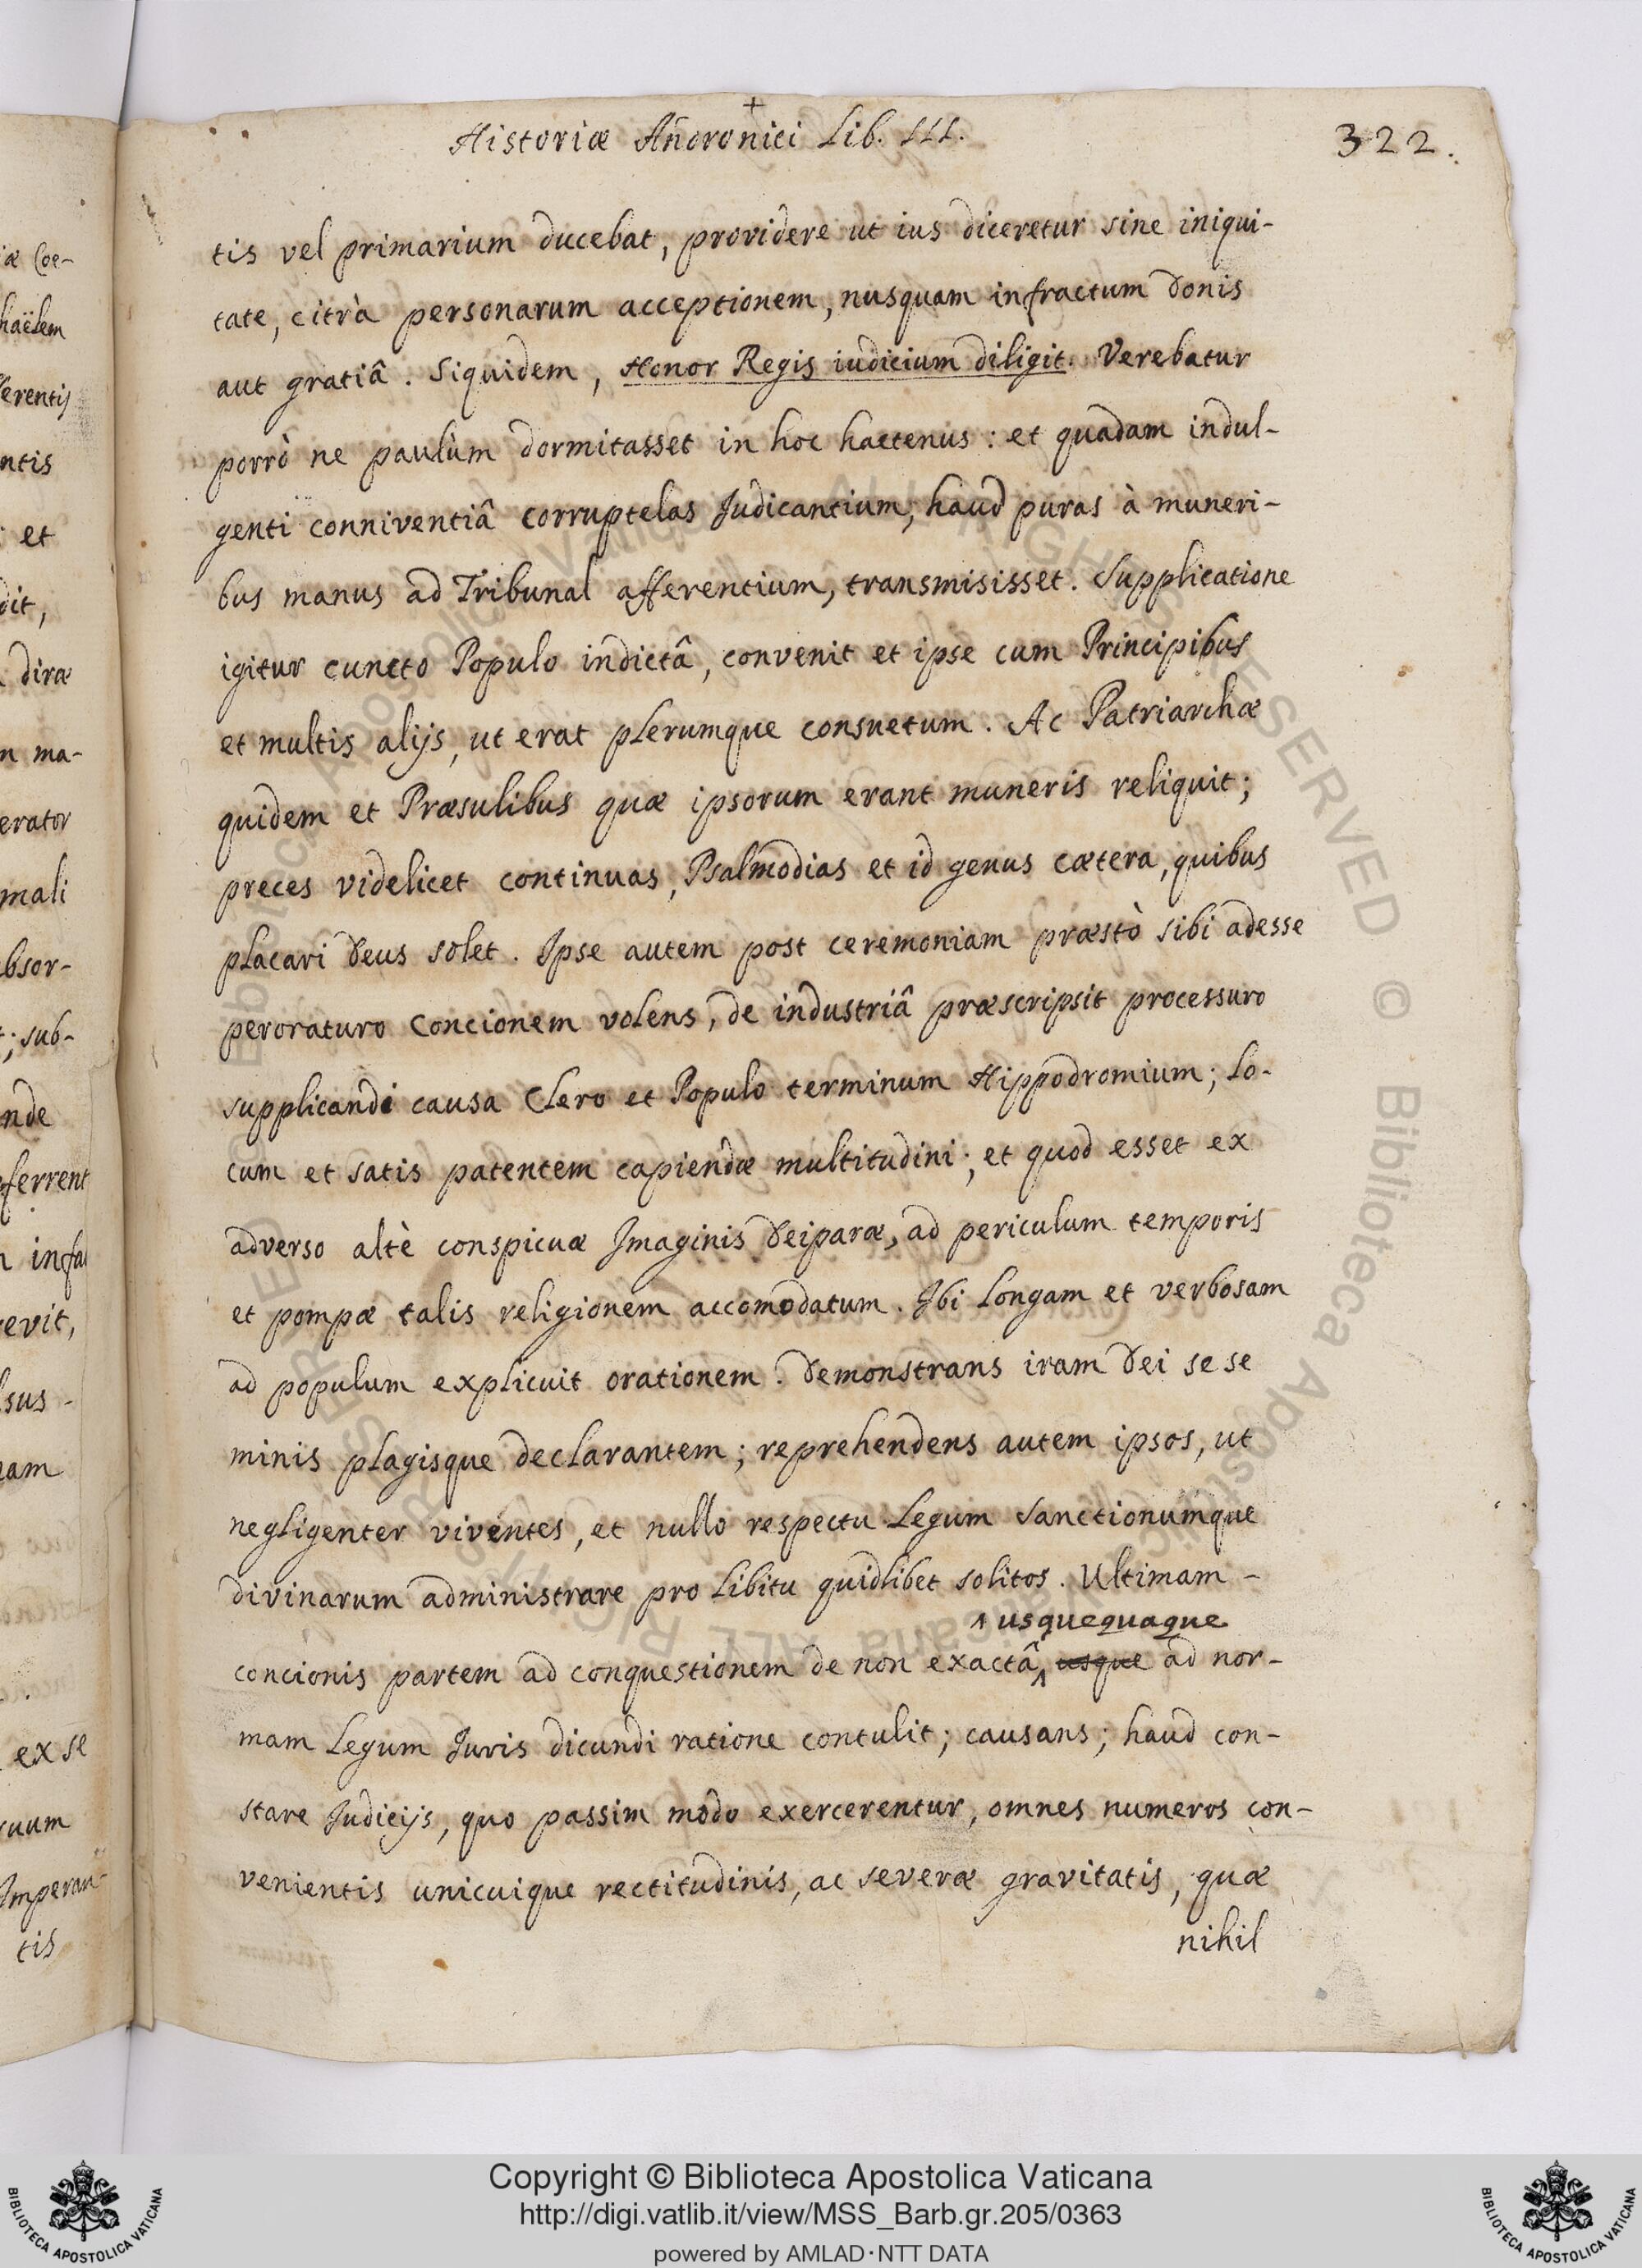 +
Historiæ Andronici Lib. III.
322.
tis vel primarium ducebat, providere ut ius diceretur sine iniqui-
tate, citrà personarum acceptionem, nusquam infractum donis
aut gratiâ. Siquidem, Honor Regis iudicium diligit. Verebatur
porrò ne paulùm dormitasset in hoc hactenus: et quadam indul-
genti conniventiâ corruptelas Judicantium, haud puras à muneri-
bus manus ad Tribunal afferentium, transmisisset. Supplicatione
igitur cuncto Populo indictâ, convenit et ipse cum Principibus
et multis alijs, ut erat plerumque consuetum. Ac Patriarchæ
quidem et Præsulibus quæ ipsorum erant muneris reliquit;
preces videlicet continuas, Psalmodias et id genus cætera, quibus
placari Deus solet. Ipse autem post ceremoniam præstò sibi adesse
peroraturo Concionem volens, de industriâ præscripsit processuro
supplicandi causa Clero et Populo terminum Hippodromium; lo-
cum et satis patentem capiendæ multitudini; et quod esset ex
adverso altè conspicuæ Imaginis Deiparæ, ad periculum temporis
et pompæ talis religionem accomodatum. Ibi longam et verbosam
ad populum explicuit orationem. Demonstrans iram Dei se se
minis plagisque declarantem; reprehendens autem ipsos, ut
negligenter viventes, et nullo respectu Legum Sanctionumque
divinarum administrare pro libitu quidlibet solitos. Ultimam -
^ usquequaque
concionis partem ad conquestionem de non exactâ ^ usque ad nor-
mam Legum Juris dicundi ratione contulit; causans; haud con-
stare Judicijs, quo passim modo exercerentur, omnes numeros con-
venientis unicuique rectitudinis, ac severæ gravitatis, quæ
nihil
iæ Coe-
haëlem
ferentis
ntis
et
dit,
diræ
n ma-
erator
mali
bsor-
; sub-
nde
ferrent
infa
evit,
sus -
nam
ex se
uum
Imperan-
tis
Copyright © Biblioteca Apostolica Vaticana
http://digi.vatlib.it/view/MSS_Barb.gr.205/0363
powered by AMLAD·NTT DATA
BIBLIOTECA APOSTOLICA VATICANA
BIBLIOTECA APOSTOLICA VATICANA